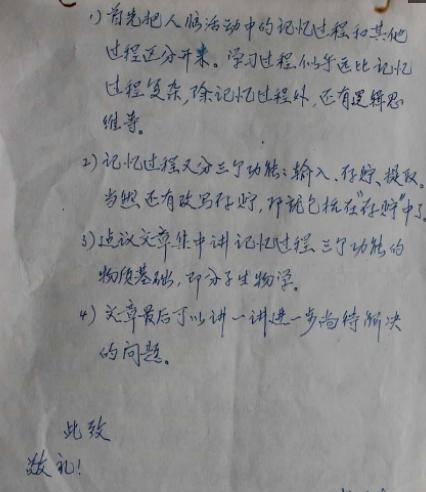 1) 首先把人脑活动中的记忆过程和其他
过程区分开来。学习过程似乎远比记忆
过程复杂,除记忆过程外,还有逻辑思
维等。
2) 记忆过程又分三个功能:输入、存贮、提取。
当然还有改写存贮,那就包括在"存贮"中了。
3) 建议文章集中讲记忆过程三个功能的
物质基础,即分子生物学。
4) 文章最后可以讲一讲进一步尚待解决
的问题。
此致
敬礼!